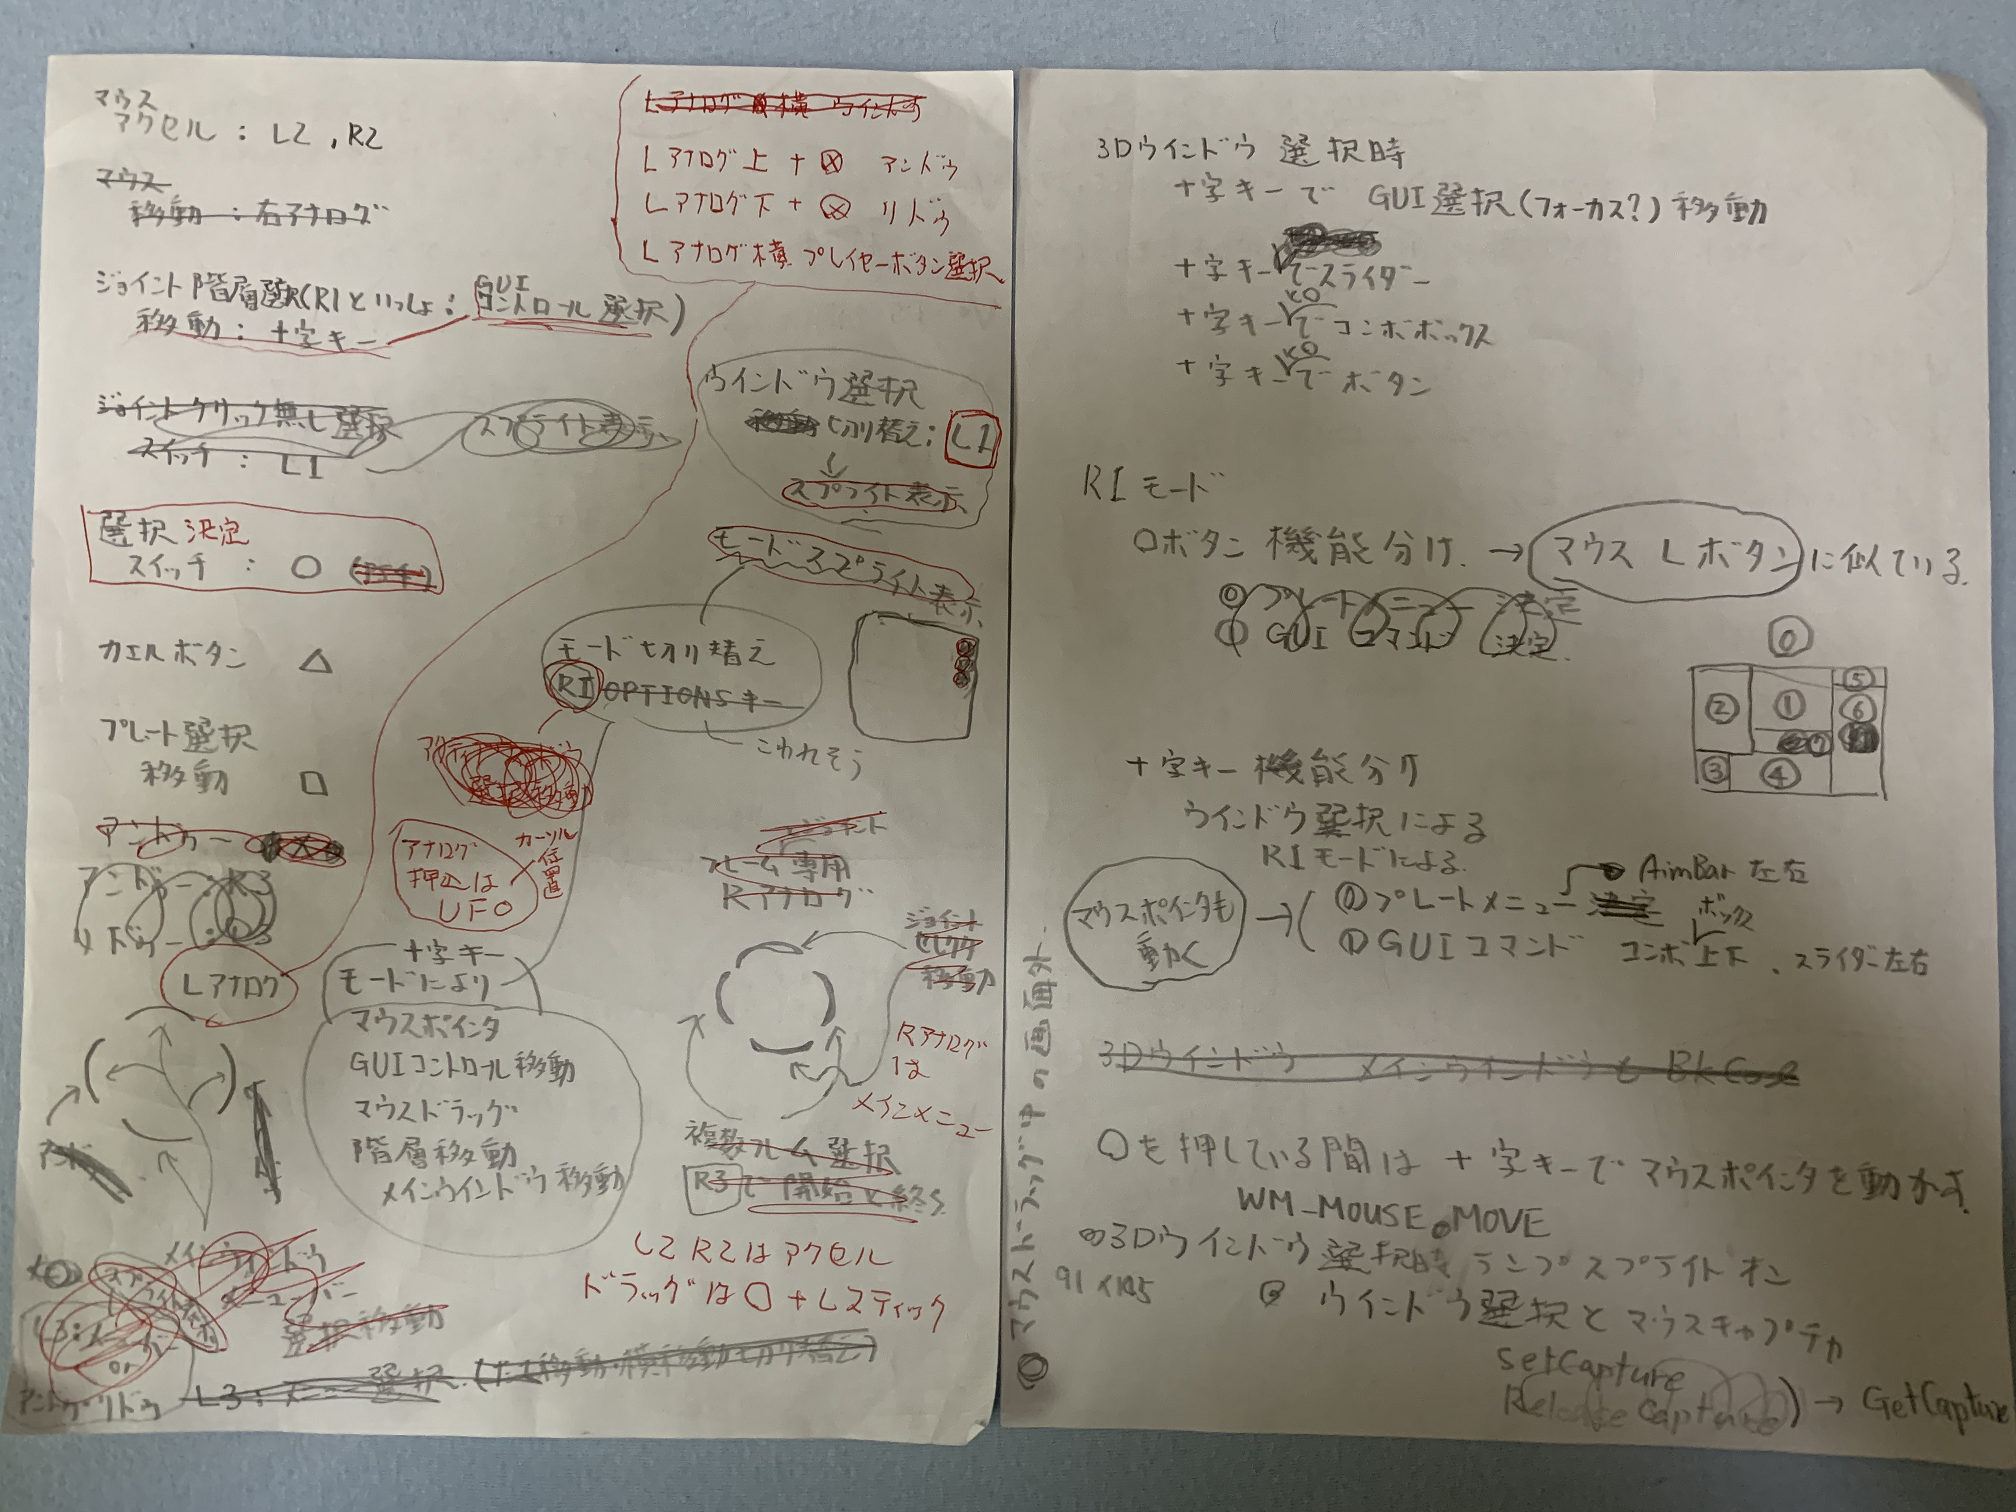 マウス
アクセル : L2 , R2
マウス
移動 : 右アナログ
ジョイント階層選択(R1といっしょ : GUI
コントロール 選択)
移動 : 十字キー
ジョイントクリック無し選択
スイッチ : L1
スプライト表示
選択 決定
スイッチ : ○
カエルボタン △
プレート選択
移動 □
アンドゥー
アンドゥー : R3
リドゥー : L3
Lアナログ
Lアナログ 横 ウインドウ
Lアナログ上 + ⊗ アンドゥ
Lアナログ下 + ⊗ リドゥ
Lアナログ横 プレイヤーボタン選択
ウインドウ選択
移動 切り替え : L1
↓
スプライト表示
モードスプライト表示
モード切り替え
R1 OPTIONSキー
こわれそう
選択移動
アナログ
押込は
UFO
カーソル
位置
ジョイント
フレーム専用
Rアナログ
十字キー
モードにより
マウスポインタ
GUIコントロール移動
マウスドラッグ
階層移動
メインウインドウ移動
ジョイント
セレクタ
移動
Rアナログ
は
メインメニュー
複数フレーム選択
R3で開始と終り
L2 R2はアクセル
ドラッグは○+Lスティック
メインウインドウ
メニューバー
選択移動
or
アンドゥ・リドゥ
L3 : メニュー選択 (たて移動・横移動切り替え)
3Dウインドウ 選択時
十字キーで GUI選択(フォーカス?)移動
十字キーでスライダー
十字キーで コンボボックス
十字キーで ボタン
R1モード
○ボタン 機能分け. → マウス Lボタンに似ている.
⓪ プレートメニュー 決定
① GUI コマンド 決定.
⓪
② ① ⑤
⑥
③ ④
十字キー 機能分け
ウインドウ選択による
R1モードによる.
マウスポインタも
動く
→ ( ⓪プレートメニュー 決定 AimBar 左右
①GUIコマンド コンボボックス上下 、スライダー左右
3Dウインドウ メインウインドウも
○を押している間は 十字キーで マウスポインタを動かす.
WM_MOUSEMOVE
3Dウインドウ選択時 ランプスプライト オン
91 x 105
ウインドウ選択と マウスキャプチャ
SetCapture
ReleaseCapture ) → GetCapture
マウスドラッグ中の画面外.